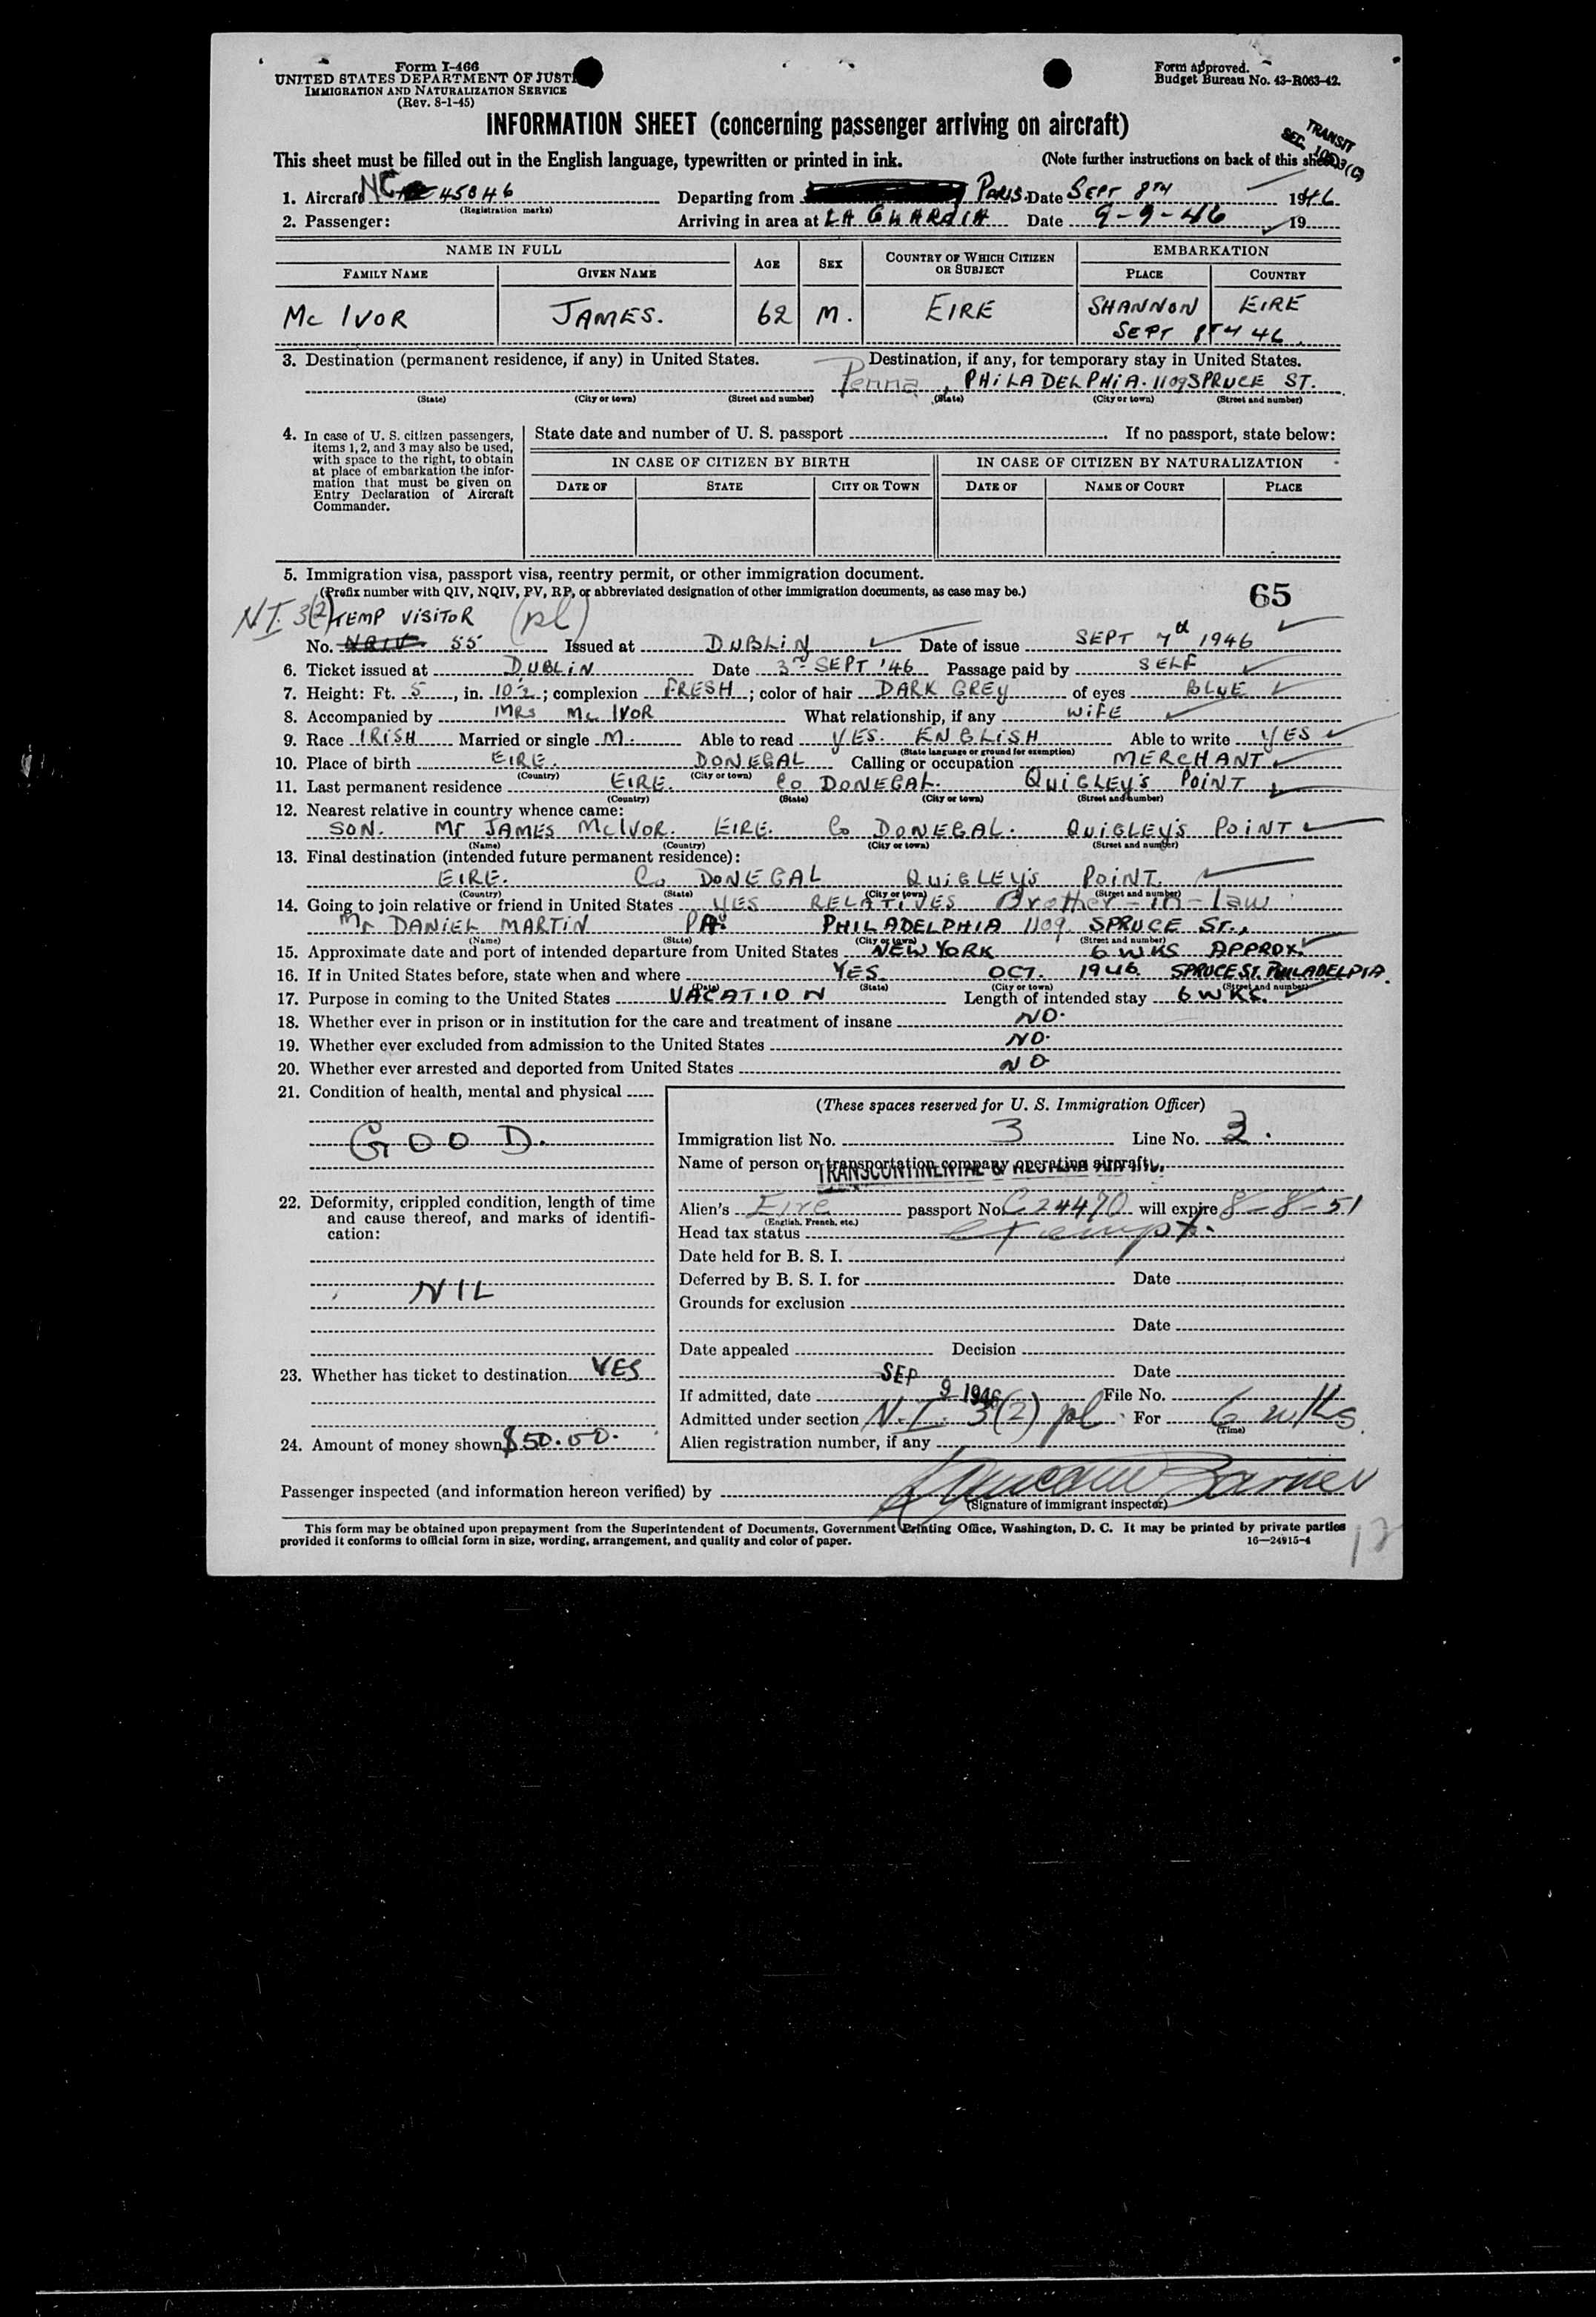 Form I-466
UNITED STATES DEPARTMENT OF JUSTI
IMMIGRATION AND NATURALIZATION SERVICE
(Rev. 8-1-45)
Form approved.
Budget Bureau No. 43-R063-42.
INFORMATION SHEET (concerning passenger arriving on aircraft)
TRANSIT
SEC.
This sheet must be filled out in the English language, typewritten or printed in ink. (Note further instructions on back of this
1. Aircraft NC 45346 Departing from PARIS. Date SEPT 8TH 1946
(Registration marks)
2. Passenger: Arriving in area at LA GUARDIA Date 9-9-46 19
NAME IN FULL AGE SEX COUNTRY OF WHICH CITIZEN OR SUBJECT EMBARKATION
FAMILY NAME GIVEN NAME PLACE COUNTRY
Mc IVOR JAMES. 62 M. EIRE SHANNON EIRE
SEPT 8TH 46
3. Destination (permanent residence, if any) in United States. Destination, if any, for temporary stay in United States.
Penna, PHILADELPHIA. 1109 SPRUCE ST.
(State) (City or town) (Street and number) (State) (City or town) (Street and number)
4. In case of U. S. citizen passengers, items 1, 2, and 3 may also be used, with space to the right, to obtain at place of embarkation the information that must be given on Entry Declaration of Aircraft Commander.
State date and number of U. S. passport If no passport, state below:
IN CASE OF CITIZEN BY BIRTH IN CASE OF CITIZEN BY NATURALIZATION
DATE OF STATE CITY OR TOWN DATE OF NAME OF COURT PLACE
5. Immigration visa, passport visa, reentry permit, or other immigration document.
(Prefix number with QIV, NQIV, PV, RP, or abbreviated designation of other immigration documents, as case may be.) 65
NI 3(2) TEMP VISITOR (pl)
No. 55 Issued at DUBLIN Date of issue SEPT 7th 1946
6. Ticket issued at DUBLIN Date 3RD SEPT '46 Passage paid by SELF
7. Height: Ft. 5, in. 10½; complexion FRESH; color of hair DARK GREY of eyes BLUE
8. Accompanied by MRS Mc IVOR What relationship, if any WIFE
9. Race IRISH Married or single M. Able to read YES. ENGLISH Able to write YES
(State language or ground for exemption)
10. Place of birth EIRE. DONEGAL Calling or occupation MERCHANT
(Country) (City or town)
11. Last permanent residence EIRE. Co DONEGAL. QUIGLEY'S POINT
(Country) (State) (City or town) (Street and number)
12. Nearest relative in country whence came:
SON. Mr JAMES McIVOR. EIRE. Co DONEGAL. QUIGLEY'S POINT
(Name) (Country) (City or town) (Street and number)
13. Final destination (intended future permanent residence):
EIRE. Co DONEGAL QUIGLEY'S POINT.
(Country) (State) (City or town) (Street and number)
14. Going to join relative or friend in United States YES RELATIVES Brother-in-law
Mr DANIEL MARTIN PA. PHILADELPHIA 1109 SPRUCE ST.,
(Name) (State) (City or town) (Street and number)
15. Approximate date and port of intended departure from United States NEW YORK 6 WKS APPROX.
16. If in United States before, state when and where YES OCT. 1946 SPRUCE ST. PHILADELPIA.
(Date) (State) (City or town) (Street and number)
17. Purpose in coming to the United States VACATION Length of intended stay 6 WKS.
18. Whether ever in prison or in institution for the care and treatment of insane NO.
19. Whether ever excluded from admission to the United States NO.
20. Whether ever arrested and deported from United States NO
21. Condition of health, mental and physical
GOOD.
22. Deformity, crippled condition, length of time and cause thereof, and marks of identification:
NIL
23. Whether has ticket to destination YES
24. Amount of money shown $50.00.
(These spaces reserved for U. S. Immigration Officer)
Immigration list No. 3 Line No. 2.
Name of person or transportation company operating aircraft
TRANSCONTINENTAL &
Alien's Eire passport No. C24470 will expire 8-8-51
(English, French, etc.)
Head tax status exempt.
Date held for B. S. I.
Deferred by B. S. I. for Date
Grounds for exclusion
Date
Date appealed Decision
Date
If admitted, date SEP 9 1946 File No.
Admitted under section N.I. 3(2) pl For 6 wks.
(Time)
Alien registration number, if any
Passenger inspected (and information hereon verified) by
(Signature of immigrant inspector)
This form may be obtained upon prepayment from the Superintendent of Documents, Government Printing Office, Washington, D. C. It may be printed by private parties
provided it conforms to official form in size, wording, arrangement, and quality and color of paper. 16—24915-4
12